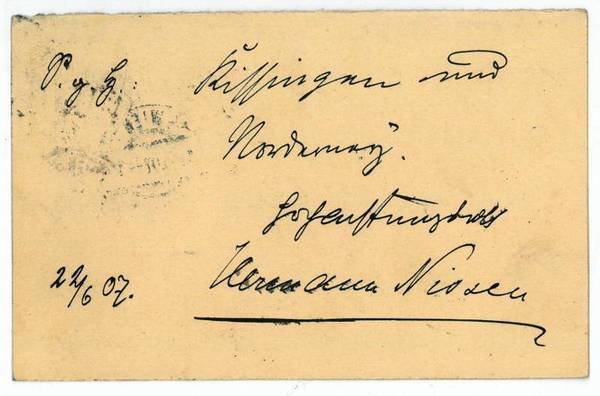 P. g. H.: Kissingen und
Norderney.
Hochachtungsvoll
22/6 07. Hermann Nissen